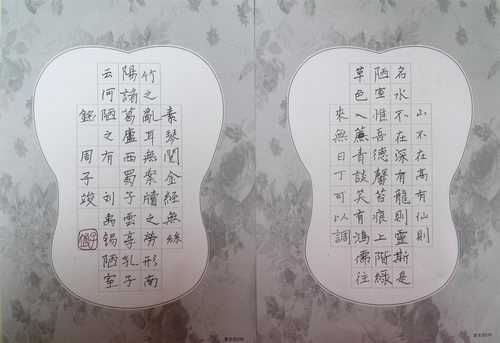 山不在高有仙則
名水不在深有龍則靈斯是
陋室惟吾德馨苔痕上階綠
草色入簾青談笑有鴻儒往
來無白丁可以調
素琴閱金經無絲
竹之亂耳無案牘之勞形南
陽諸葛廬西蜀子雲亭孔子
云何陋之有 劉禹錫陋室
銘 周子竣